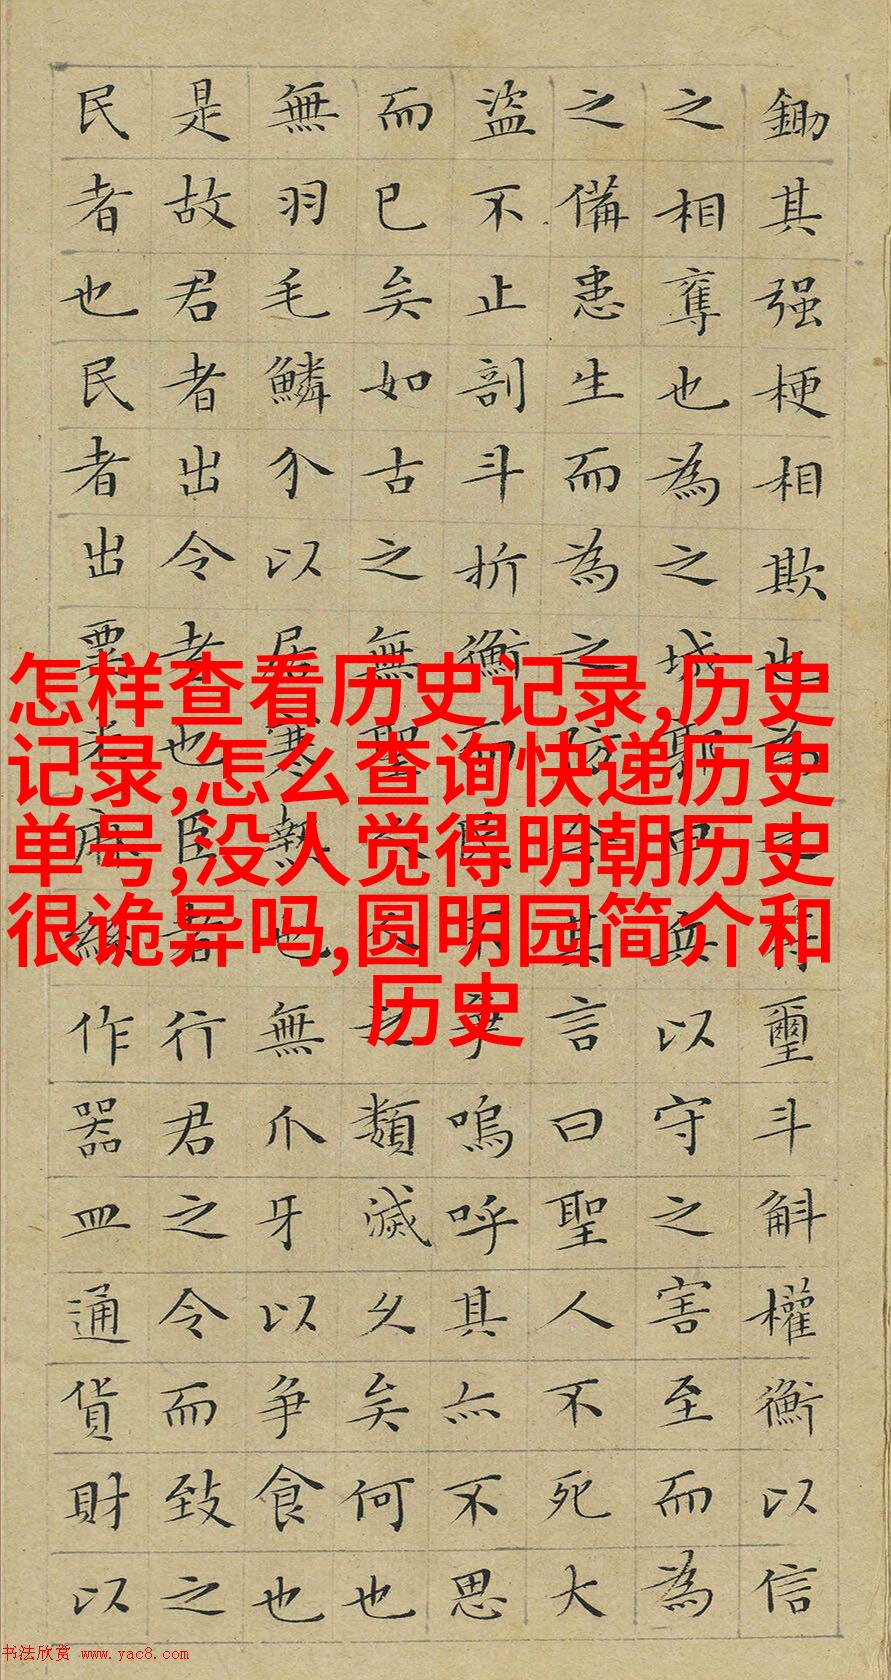 鋤其强梗相欺也為之符璽斗斛權衡以信
之相奪也為之城郭甲兵以守之害至而為
之備患生而為之防今其言曰聖人不死大
盜不止剖斗折衡而民不爭嗚呼其亦不思
而已矣如古之無聖人人之類滅久矣何也
無羽毛鱗介以居寒熱也無爪牙以爭食也
是故君者出令者也臣者行君之令而致之
民者也民者出粟米麻絲作器皿通貨財以
怎样查看历史记录,历史
记录,怎么查询快递历史
单号,没人觉得明朝历史
很诡异吗,圆明园简介和
历史
书法欣赏 www.yac8.com